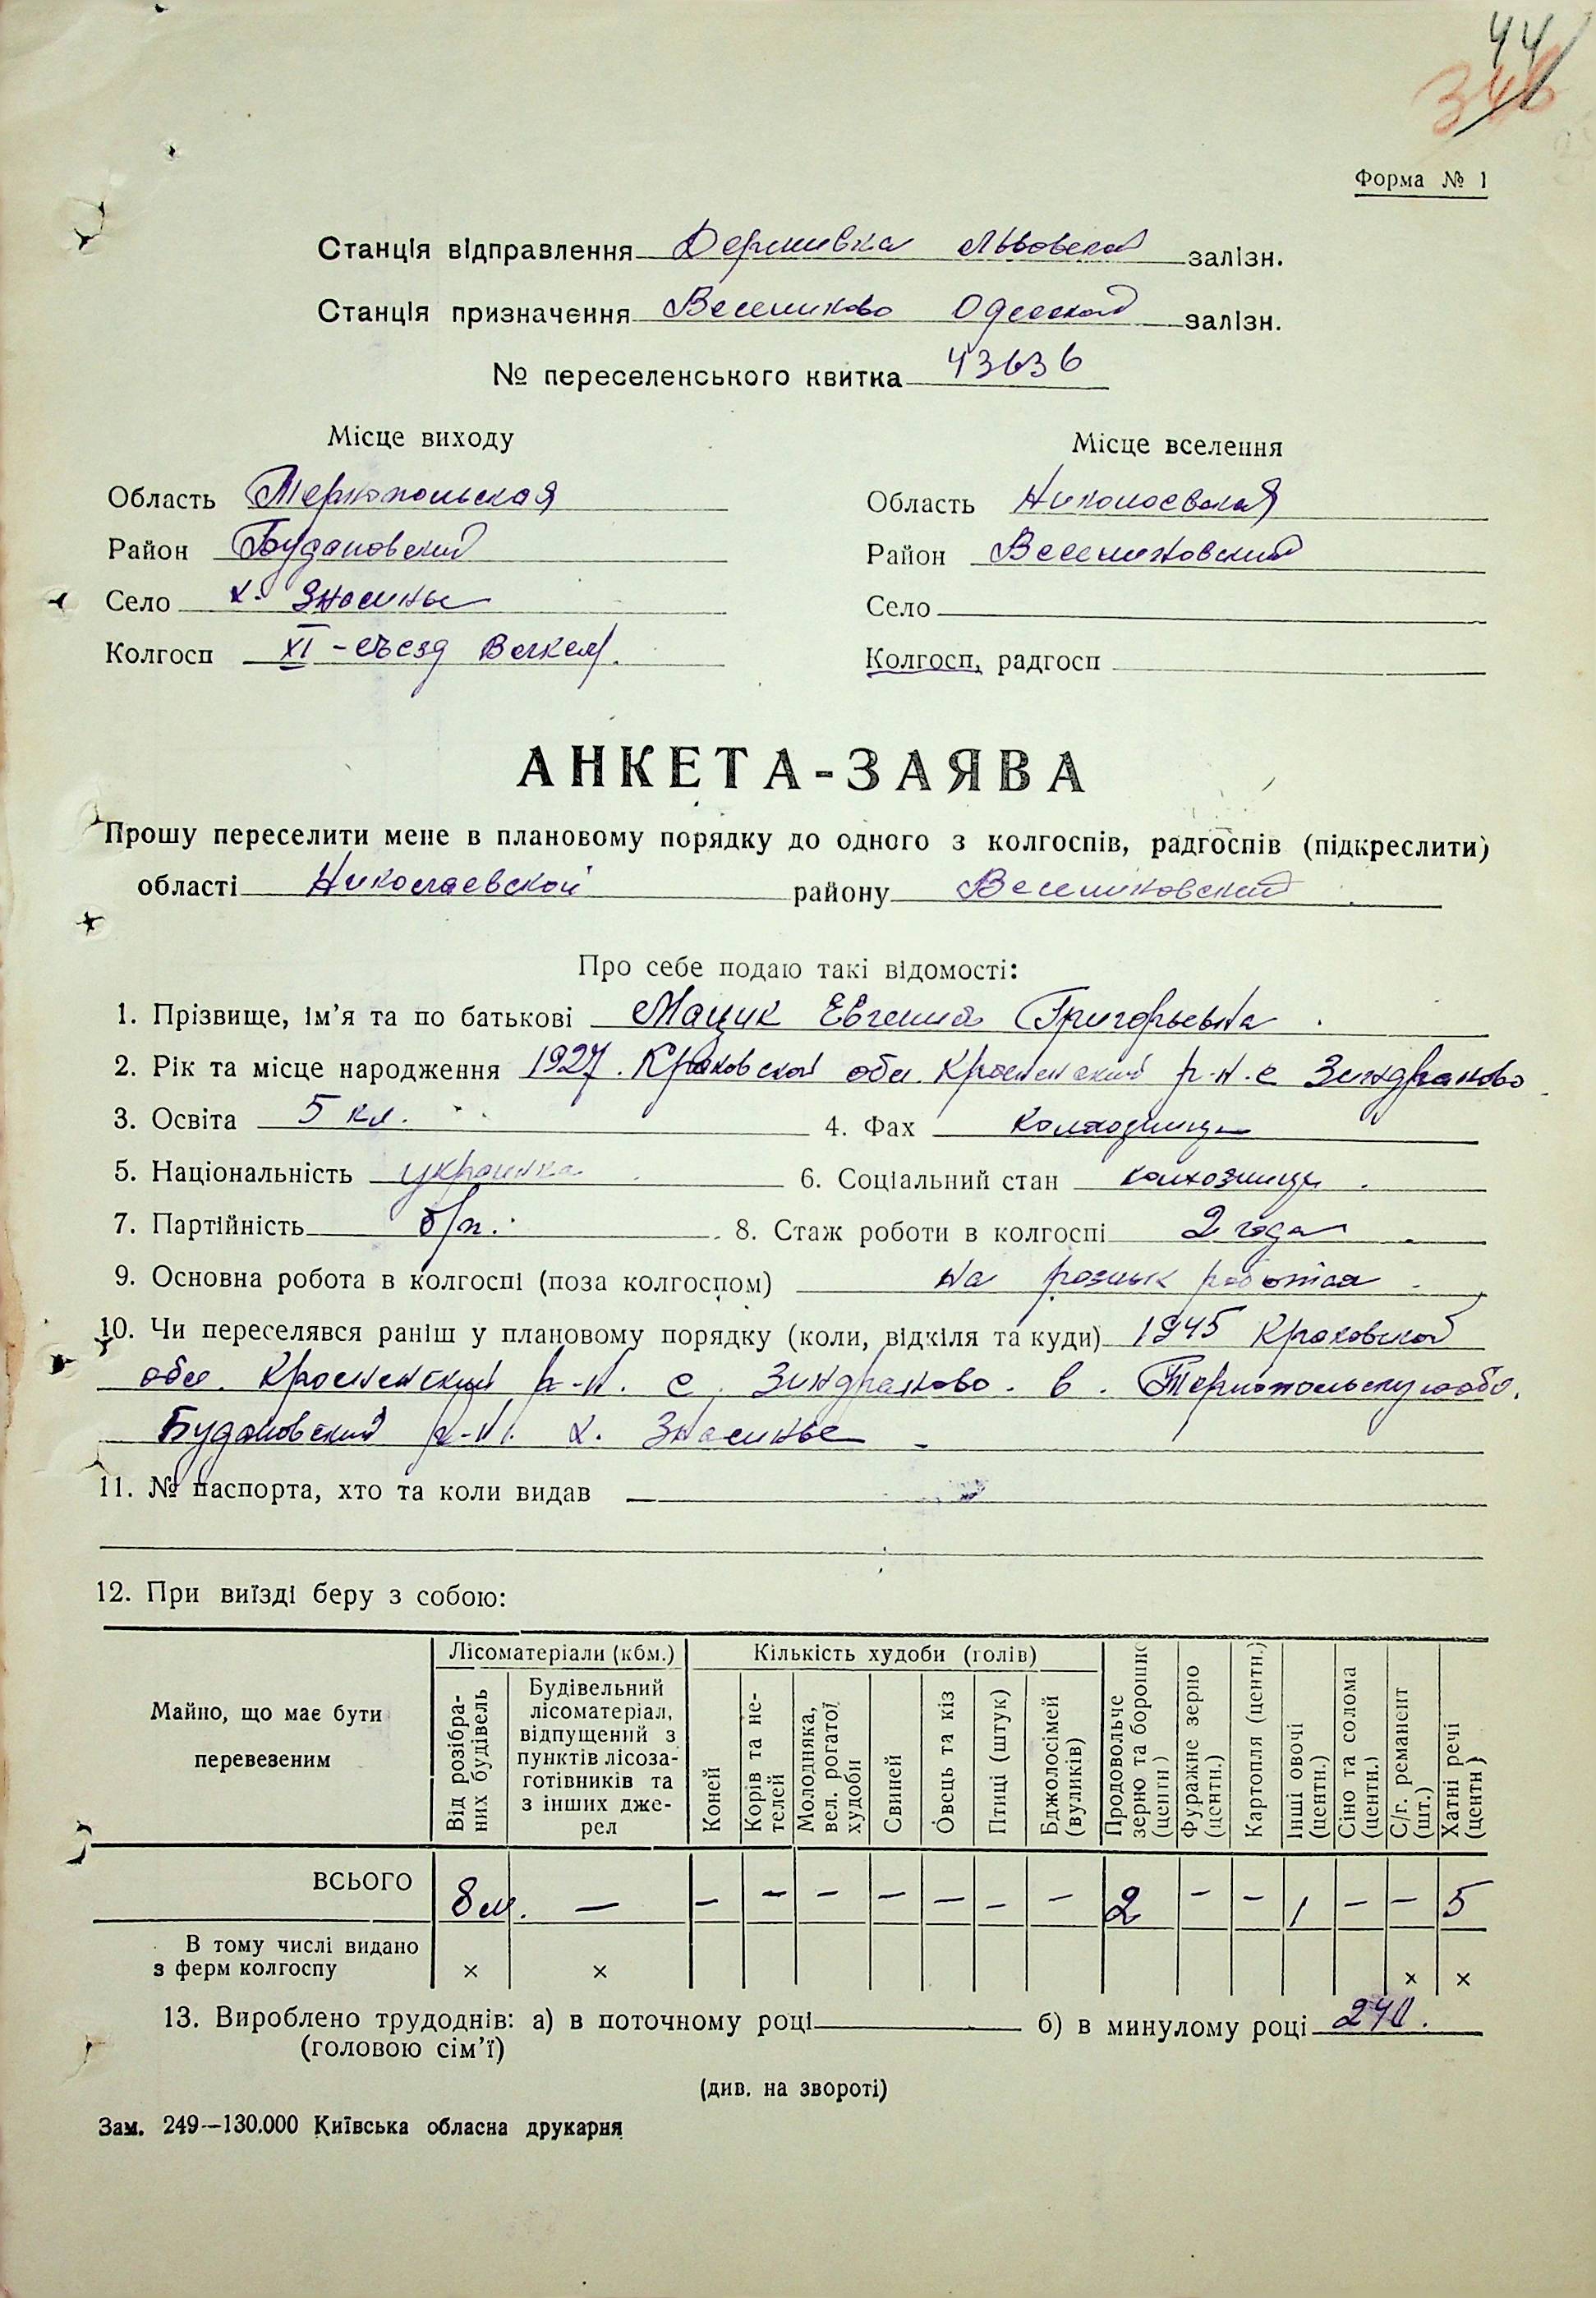 44
346
Форма № 1
Станція відправлення Деришвка Львовской залізн.
Станція призначення Веселиново Одесской залізн.
№ переселенського квитка 43636
Місце виходу
Місце вселення
Область Тернопольская
Область Николаевская
Район Будановский
Район Веселиновский
Село х. Знесинье
Село
Колгосп XI-съезд Влксм.
Колгосп, радгосп
АНКЕТА-ЗАЯВА
Прошу переселити мене в плановому порядку до одного з колгоспів, радгоспів (підкреслити)
області Николаевской району Веселиновский
Про себе подаю такі відомості:
1. Прізвище, ім'я та по батькові Мацик Евгения Григорьевна
2. Рік та місце народження 1927. Краковской обл. Кросненский р-н. с Зиндраново
3. Освіта 5 кл. 4. Фах колхозница
5. Національність украинка 6. Соціальний стан колхозница.
7. Партійність б/п. 8. Стаж роботи в колгоспі 2 года
9. Основна робота в колгоспі (поза колгоспом) на разных работах
10. Чи переселявся раніш у плановому порядку (коли, відкіля та куди) 1945 Краковской
обл. Кросненский р-н. с. Зиндраново. в. Тернопольскую обл.
Будановский р-н. х. Знесинье
11. № паспорта, хто та коли видав —
12. При виїзді беру з собою:
Майно, що має бути перевезеним
Лісоматеріали (кбм.)
Кількість худоби (голів)
Від розібраних будівель
Будівельний лісоматеріал, відпущений з пунктів лісозаготівників та з інших джерел
Коней
Корів та нетелей
Молодняка, вел. рогатої худоби
Свиней
Овець та кіз
Птиці (штук)
Бджолосімей (вуликів)
Продовольче зерно та борошно (центн)
Фуражне зерно (центн.)
Картопля (центн.)
Інші овочі (центн.)
Сіно та солома (центн.)
С/г. реманент (шт.)
Хатні речі (центн)
ВСЬОГО 8м. — — — — — — — — 2 — — 1 — — 5
В тому числі видано
з ферм колгоспу × × × ×
13. Вироблено трудоднів: а) в поточному році б) в минулому році 240.
(головою сім'ї)
(див. на звороті)
Зам. 249—130.000 Київська обласна друкарня